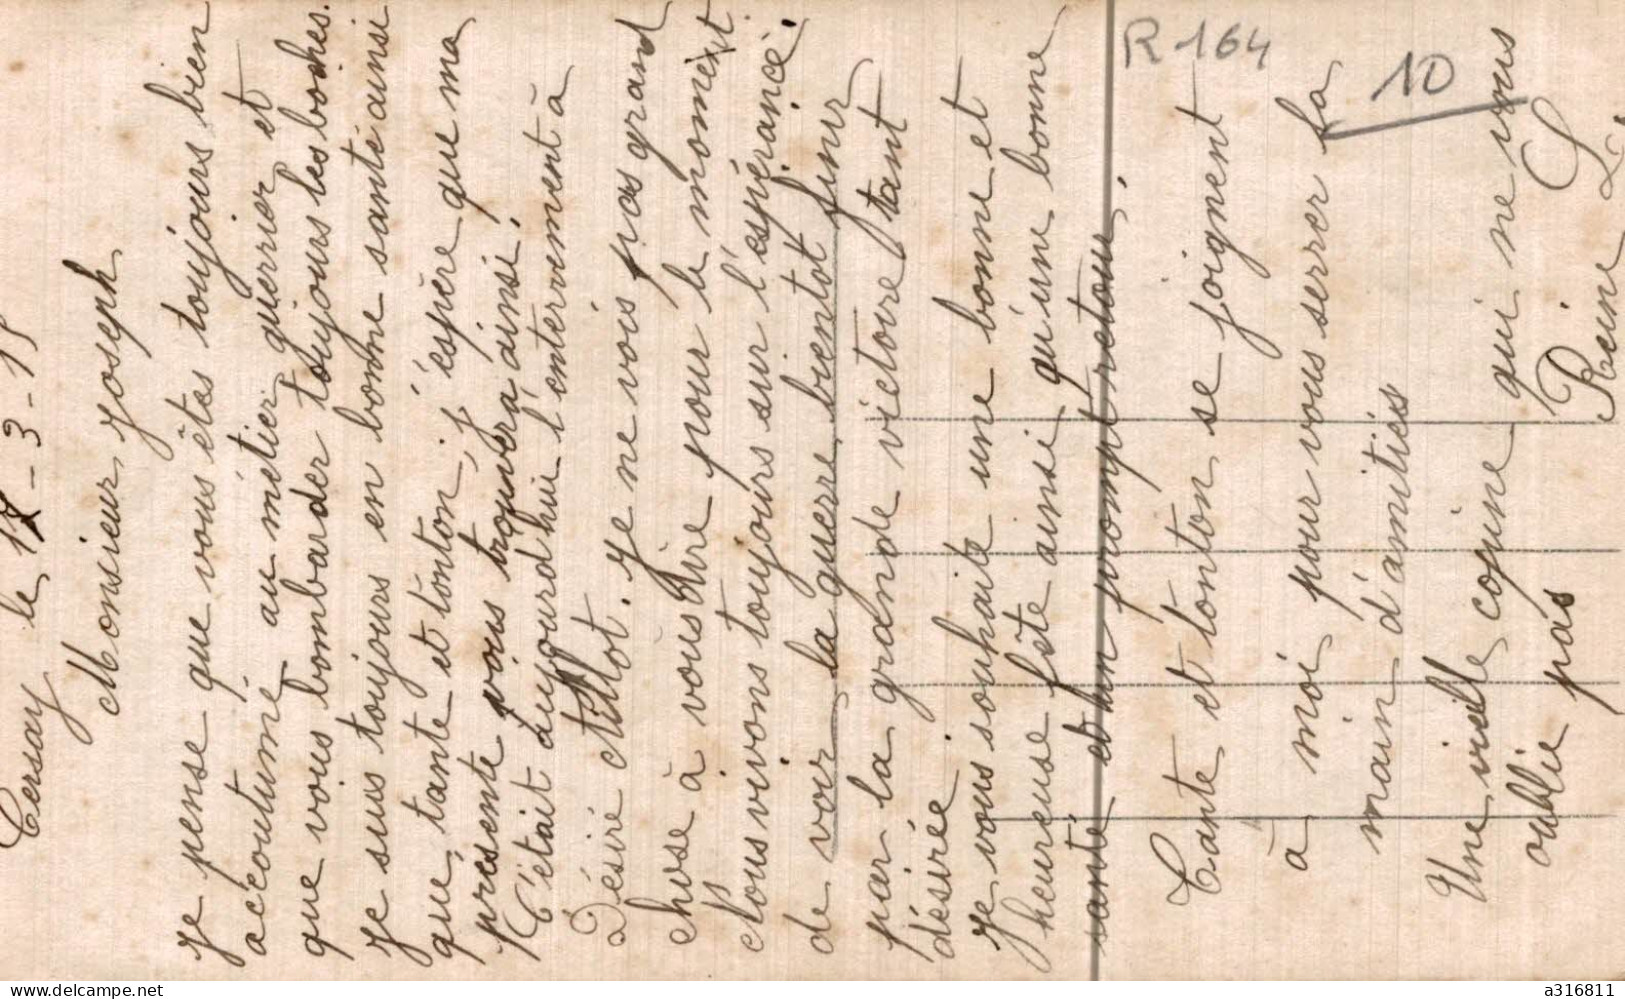 Cersay le 17-3-15
Monsieur Joseph
Je pense que vous êtes toujours bien
accoutumé au métier guerrier et
que vous bombarder toujours les boches.
Je suis toujours en bonne santé ainsi
que, tante et tonton, j'éspère que ma
présente vous trouvera ainsi.
C'était aujourd'hui l'enterrement à
Désiré Millot. Je ne vois pas grand
chose à vous dire pour le moment
Nous vivons toujours sur l'espérance
de voir la guerre bientot finir
par la grande victoire tant
désirée.
Je vous souhaite une bonne et
heureuse fête ainsi qu'une bonne
santé et un prompt retour,
Tante et tonton se joignent
à moi pour vous serrer la
main d'amitiés
Une vieille copine qui ne vous
oublie pas Reine L.
R 164
10
www.delcampe.net
a316811